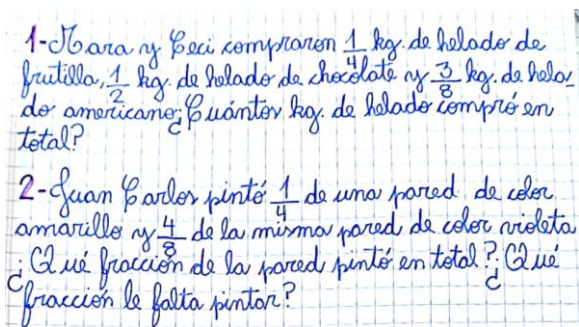 1-Mara y Ceci compraron 1/4 kg. de helado de
frutilla, 1/2 kg. de helado de chocolate y 3/8 kg. de hela_
do americano ¿Cuántos kg. de helado compró en
total?
2-Juan Carlos pintó 1/4 de una pared de color
amarillo y 4/8 de la misma pared de color violeta
¿Qué fracción de la pared pintó en total? ¿Qué
fracción le falta pintar?